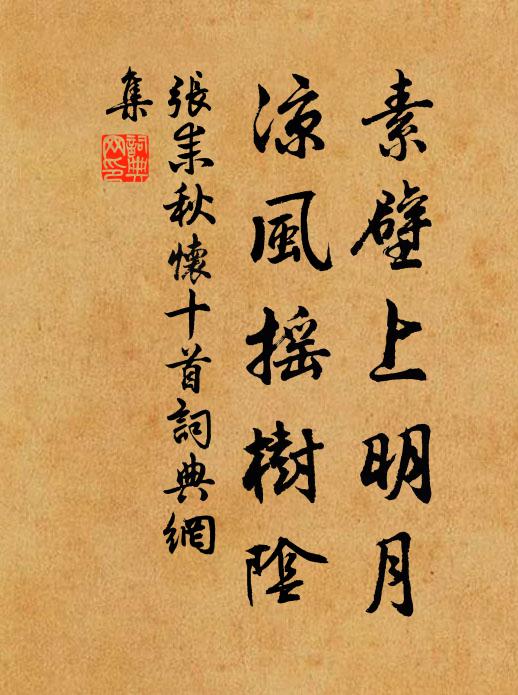 素壁上明月
涼風摇樹陰
張耒秋懷十首詞典網
集
詞典
网印